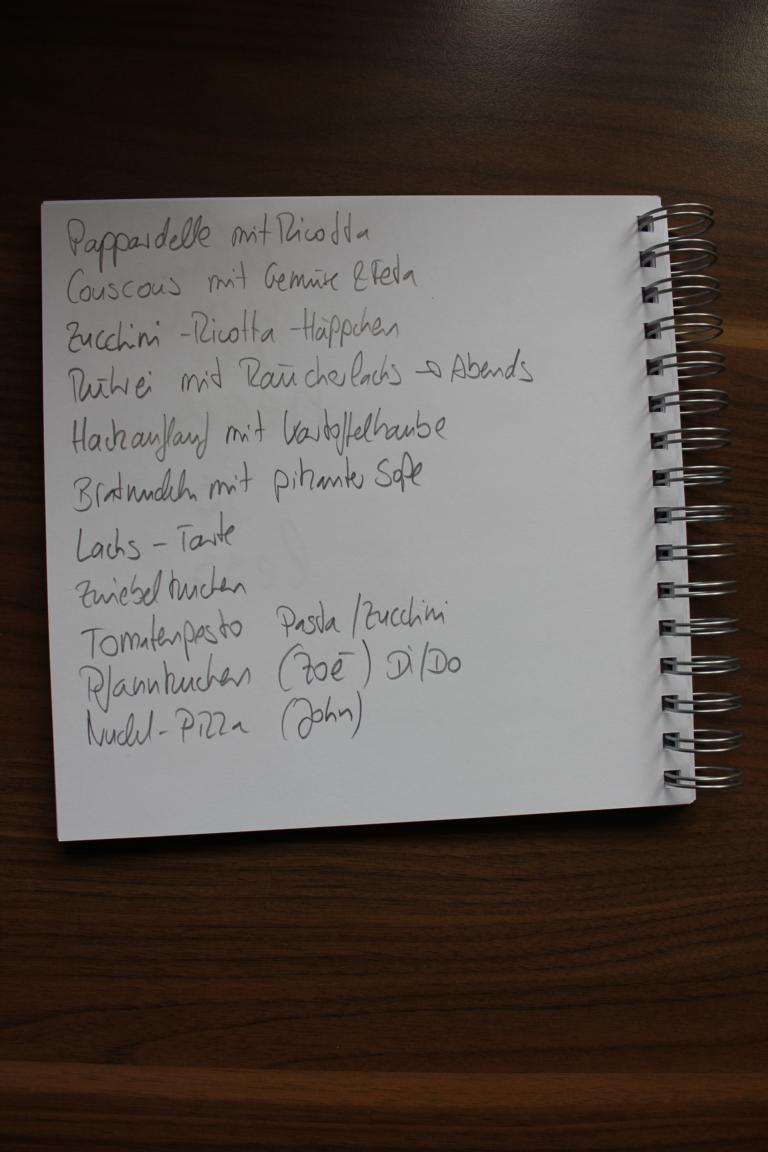 Pappardelle mit Ricotta
Couscous mit Gemüse & Feta
Zucchini - Ricotta - Häppchen
Rührei mit Räucherlachs → Abends
Hackauflauf mit Kartoffelhaube
Bratnudeln mit pikanter Soße
Lachs - Tarte
Zwiebelkuchen
Tomatenpesto Pasta / Zucchini
Pfannkuchen (Zoē) Di/Do
Nudel - Pizza (John)